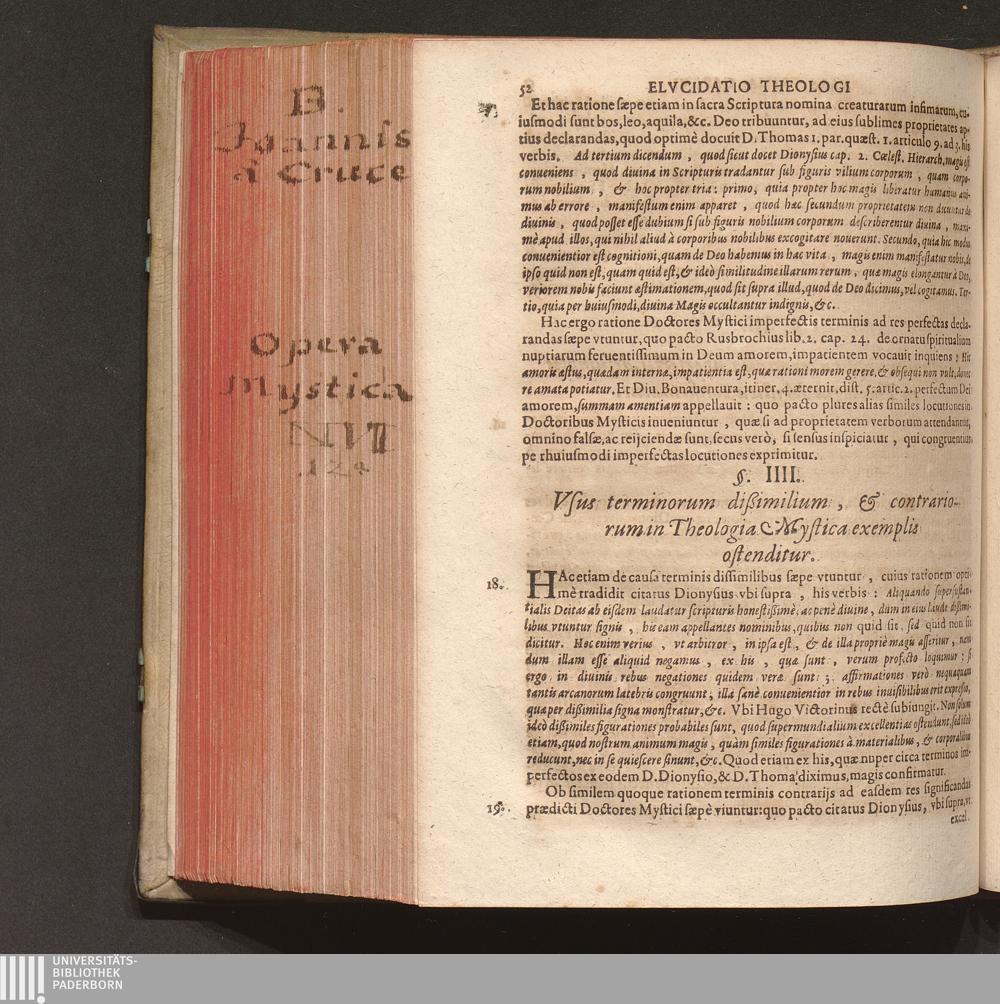 B.
Joannis
à Cruce
Opera
Mystica
NVI
124
52 ELVCIDATIO THEOLOGI
Et hac ratione sæpe etiam in sacra Scriptura nomina creaturarum infimarum, cu-
iusmodi sunt bos, leo, aquila, &c. Deo tribuuntur, ad eius sublimes proprietates ap-
tius declarandas, quod optimè docuit D. Thomas 1. par. quæst. 1. articulo 9. ad 3. his
verbis. Ad tertium dicendum, quod sicut docet Dionysius cap. 2. Cælest. Hierarch. magis est
conueniens, quod diuina in Scripturis tradantur sub figuris vilium corporum, quam corpo-
rum nobilium, & hoc propter tria: primo, quia propter hoc magis liberatur humanus ani-
mus ab errore, manifestum enim apparet, quod hæc secundum proprietatem non dicuntur de
diuinis, quod posset esse dubium si sub figuris nobilium corporum describerentur diuina, maxi-
mè apud illos, qui nihil aliud à corporibus nobilibus excogitare nouerunt. Secundo, quia hic modus
conuenientior est cognitioni, quam de Deo habemus in hac vita, magis enim manifestatur nobis, de
ipso quid non est, quam quid est, & ideò similitudine illarum rerum, quæ magis elongantur à Deo,
veriorem nobis faciunt æstimationem, quod sit supra illud, quod de Deo dicimus, vel cogitamus. Ter-
tio, quia per huiusmodi, diuina Magis occultantur indignis, &c.
Hac ergo ratione Doctores Mystici imperfectis terminis ad res perfectas decla-
randas sæpe vtuntur, quo pacto Rusbrochius lib. 2. cap. 24. de ornatu spiritualium
nuptiarum feruentissimum in Deum amorem, impatientem vocauit inquiens: Hic
amoris æstus, quædam internæ, impatientia est, quæ rationi morem gerere, & obsequi non vult, donec
re amata potiatur. Et Diu. Bonauentura, itiner. 4. æternit. dist. 5. artic. 2. perfectum Dei
amorem, summam amentiam appellauit: quo pacto plures alias similes locutiones in
Doctoribus Mysticis inueniuntur, quæ si ad proprietatem verborum attendantur,
omnino falsæ, ac reijciendæ sunt, secus verò, si sensus inspiciatur, qui congruentius
pe rhuiusmodi imperfectas locutiones exprimitur.
§. IIII.
Vsus terminorum dißimilium, & contrario-
rum in Theologia Mystica exemplis
ostenditur.
18. HAc etiam de causa terminis dissimilibus sæpe vtuntur, cuius rationem opti-
mè tradidit citatus Dionysius vbi supra, his verbis: Aliquando supersustan-
tialis Deitas ab eisdem laudatur scripturis honestißimè, ac penè diuine, dum in eius laude dißimi-
libus vtuntur signis, his eam appellantes nominibus, quibus non quid sit, sed quid non sit
dicitur. Hoc enim verius, vt arbitror, in ipsa est, & de illa propriè magis asseritur, nam
dum illam esse aliquid negamus, ex his, quæ sunt, verum profecto loquimur: si
ergo in diuinis rebus negationes quidem veræ sunt: 3. affirmationes verò nequaquam
tantis arcanorum latebris congruunt, illa sanè conuenientior in rebus inuisibilibus erit expressio,
quæ per dißimilia signa monstratur, &c. Vbi Hugo Victorinus rectè subiungit. Non solum
ideò dißimiles figurationes probabiles sunt, quod supermundialium excellentias ostendunt, sed ideò
etiam, quod nostrum animum magis, quàm similes figurationes à materialibus, & corporalibus
reducunt, nec in se quiescere sinunt, &c. Quod etiam ex his, quæ nuper circa terminos im-
perfectos ex eodem D. Dionysio, & D. Thoma diximus, magis confirmatur.
Ob similem quoque rationem terminis contrarijs ad easdem res significandas
19. prædicti Doctores Mystici sæpè vtuntur: quo pacto citatus Dionysius, vbi supra, vt
excel.
UNIVERSITÄTS-
BIBLIOTHEK
PADERBORN